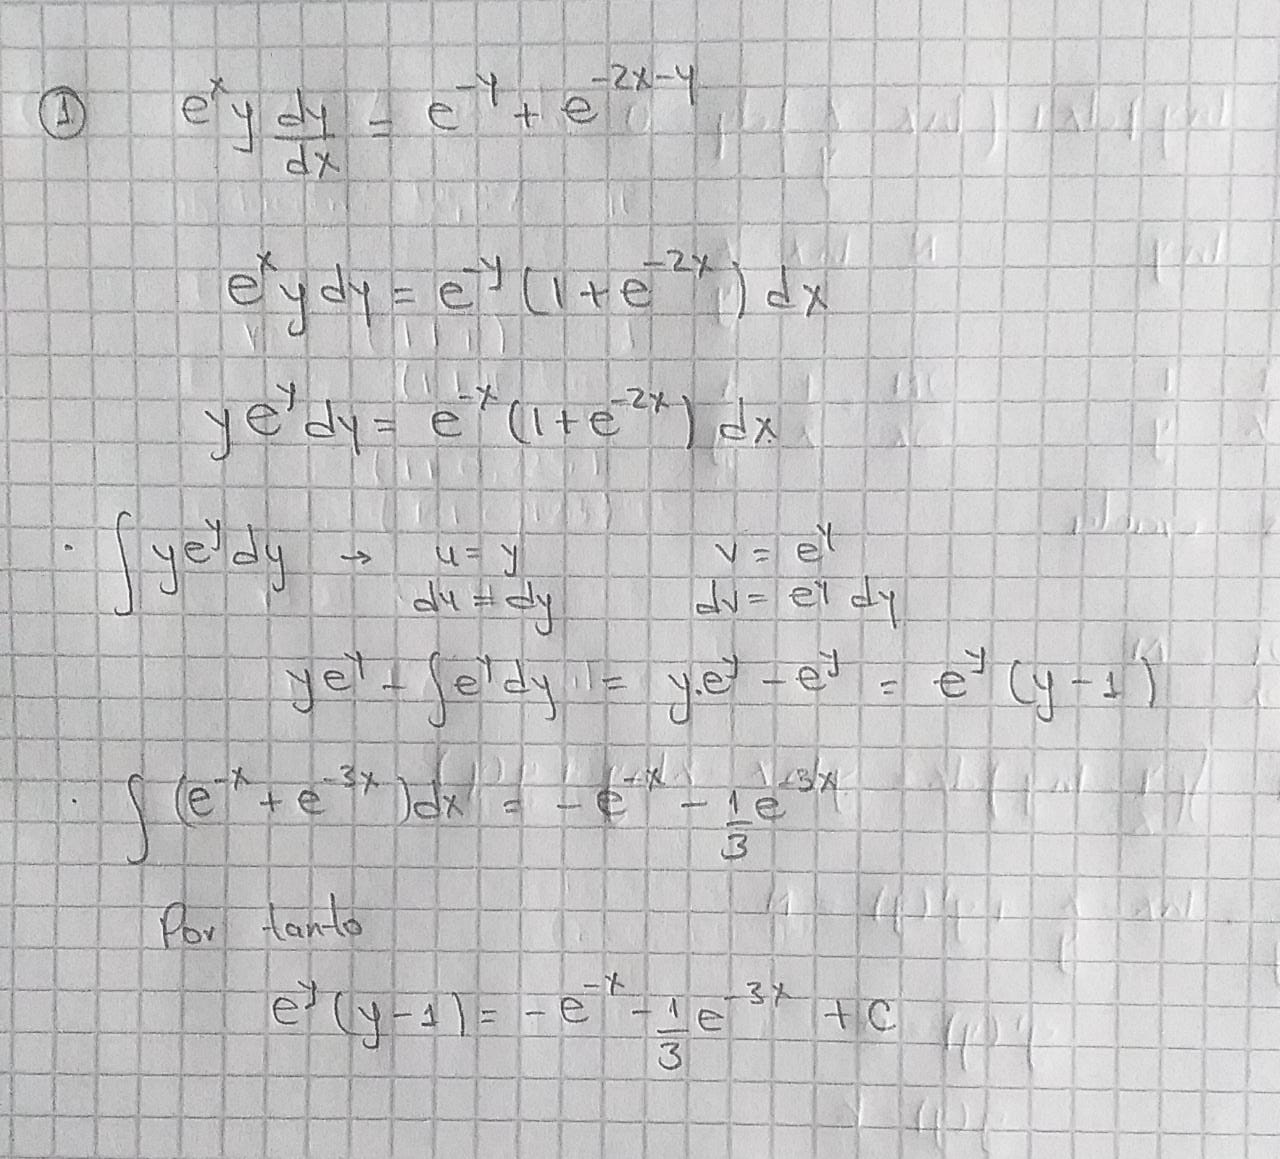 ① e^x y dy/dx = e^{-y} + e^{-2x-y}
e^x y dy = e^{-y} (1 + e^{-2x}) dx
y e^y dy = e^{-x} (1 + e^{-2x}) dx
· ∫ y e^y dy → u = y v = e^y
du = dy dv = e^y dy
y e^y - ∫ e^y dy = y.e^y - e^y = e^y (y - 1)
· ∫ (e^{-x} + e^{-3x}) dx = - e^{-x} - 1/3 e^{-3x}
Por tanto
e^y (y - 1) = - e^{-x} - 1/3 e^{-3x} + C